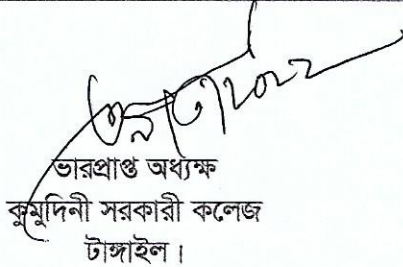 ভারপ্রাপ্ত অধ্যক্ষ
কুমুদিনী সরকারী কলেজ
টাঙ্গাইল।